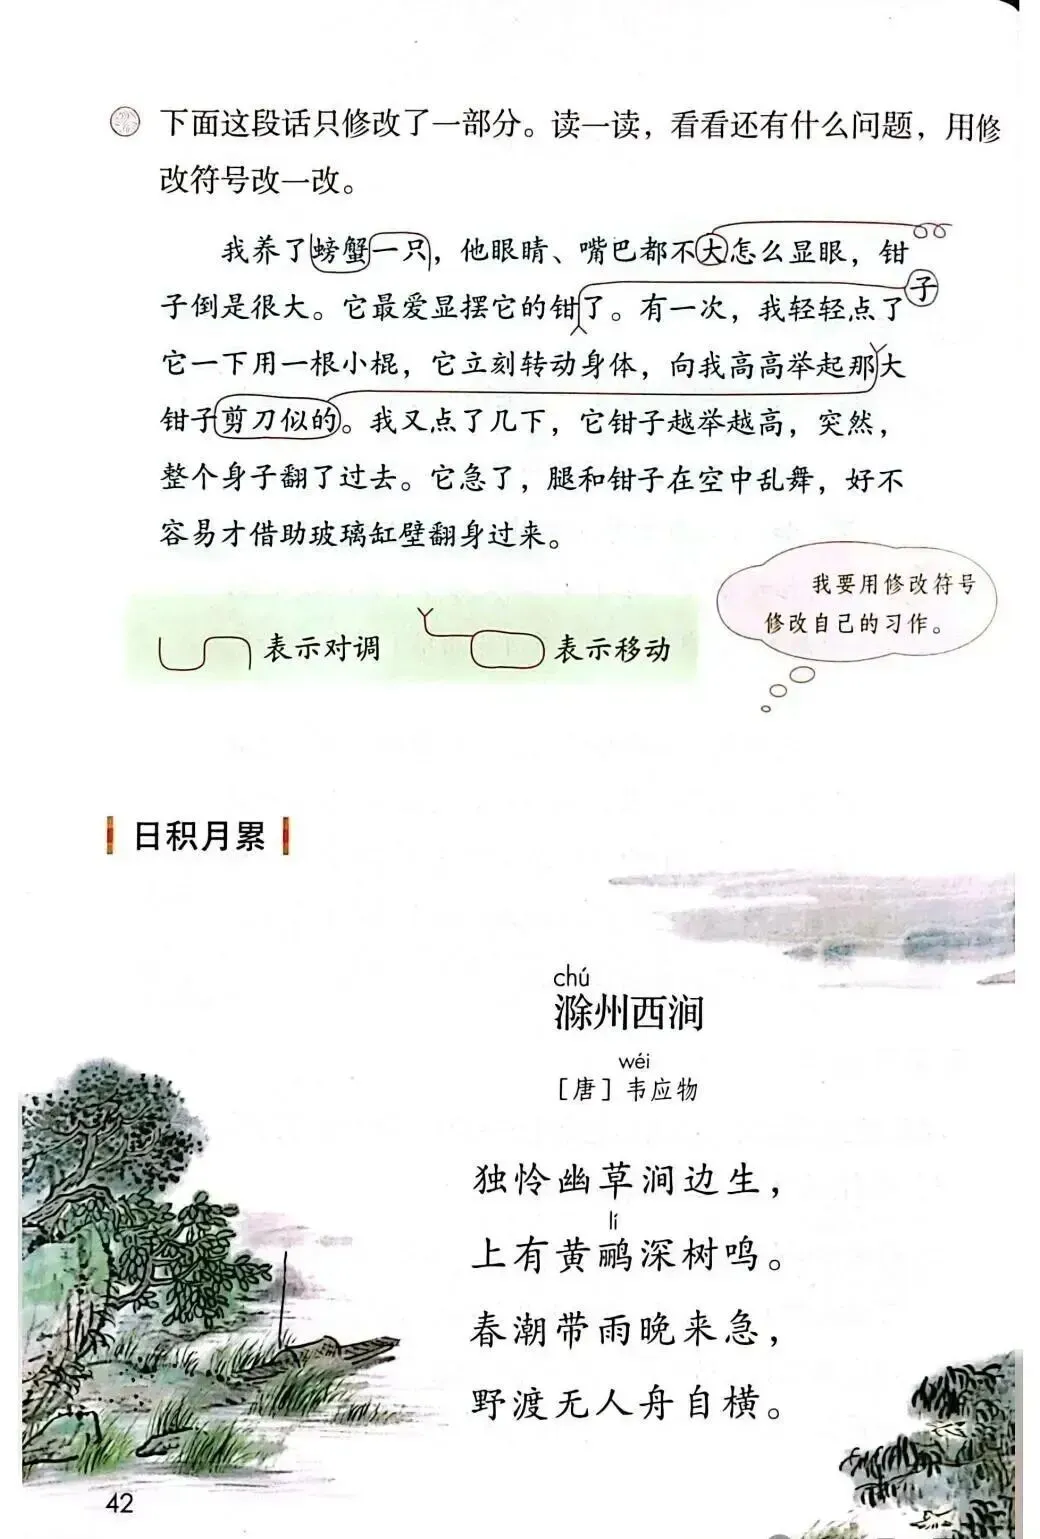 下面这段话只修改了一部分。读一读，看看还有什么问题，用修
改符号改一改。
我养了螃蟹一只，他眼睛、嘴巴都不大怎么显眼，钳
子倒是很大。它最爱显摆它的钳了。有一次，我轻轻点了
子
它一下用一根小棍，它立刻转动身体，向我高高举起那大
钳子剪刀似的。我又点了几下，它钳子越举越高，突然，
整个身子翻了过去。它急了，腿和钳子在空中乱舞，好不
容易才借助玻璃缸壁翻身过来。
表示对调
表示移动
我要用修改符号
修改自己的习作。
日积月累
chú
滁州西涧
wéi
［唐］韦应物
独怜幽草涧边生，
lí
上有黄鹂深树鸣。
春潮带雨晚来急，
野渡无人舟自横。
42